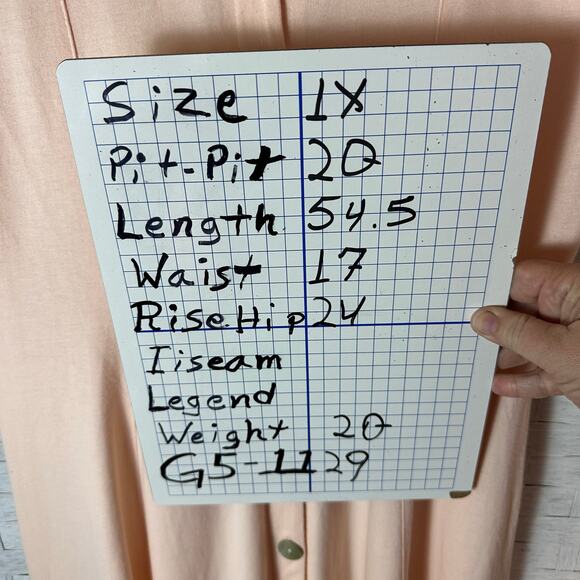 Size 1X
Pit-Pit 20
Length 54.5
Waist 17
Rise Hip 24
Iiseam
Legend
Weight 20
G5-1129